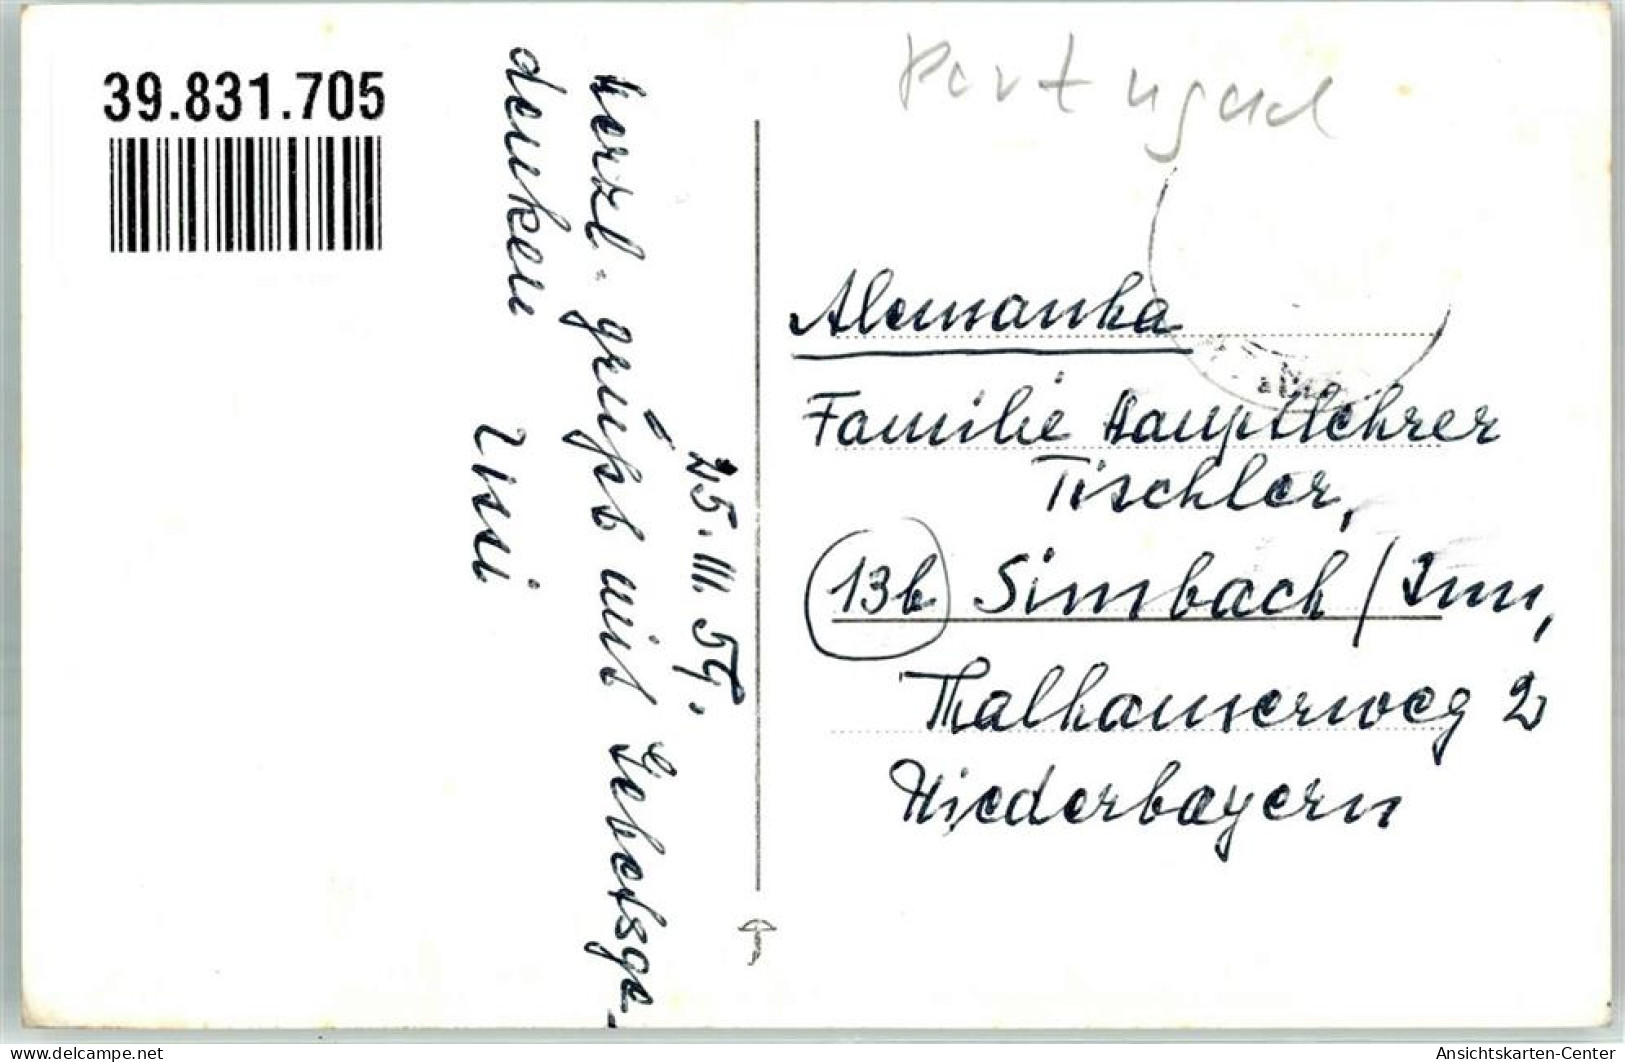 39.831.705
Portugal
25.III.59.
Herzl. grüßt mit Gebetsge-
denken
Ussi
Alemanha
Familie Hauptlehrer
Tischler,
13b Simbach/Inn,
Thalhauserweg 2
Niederbayern
delcampe.net
Ansichtskarten-Center